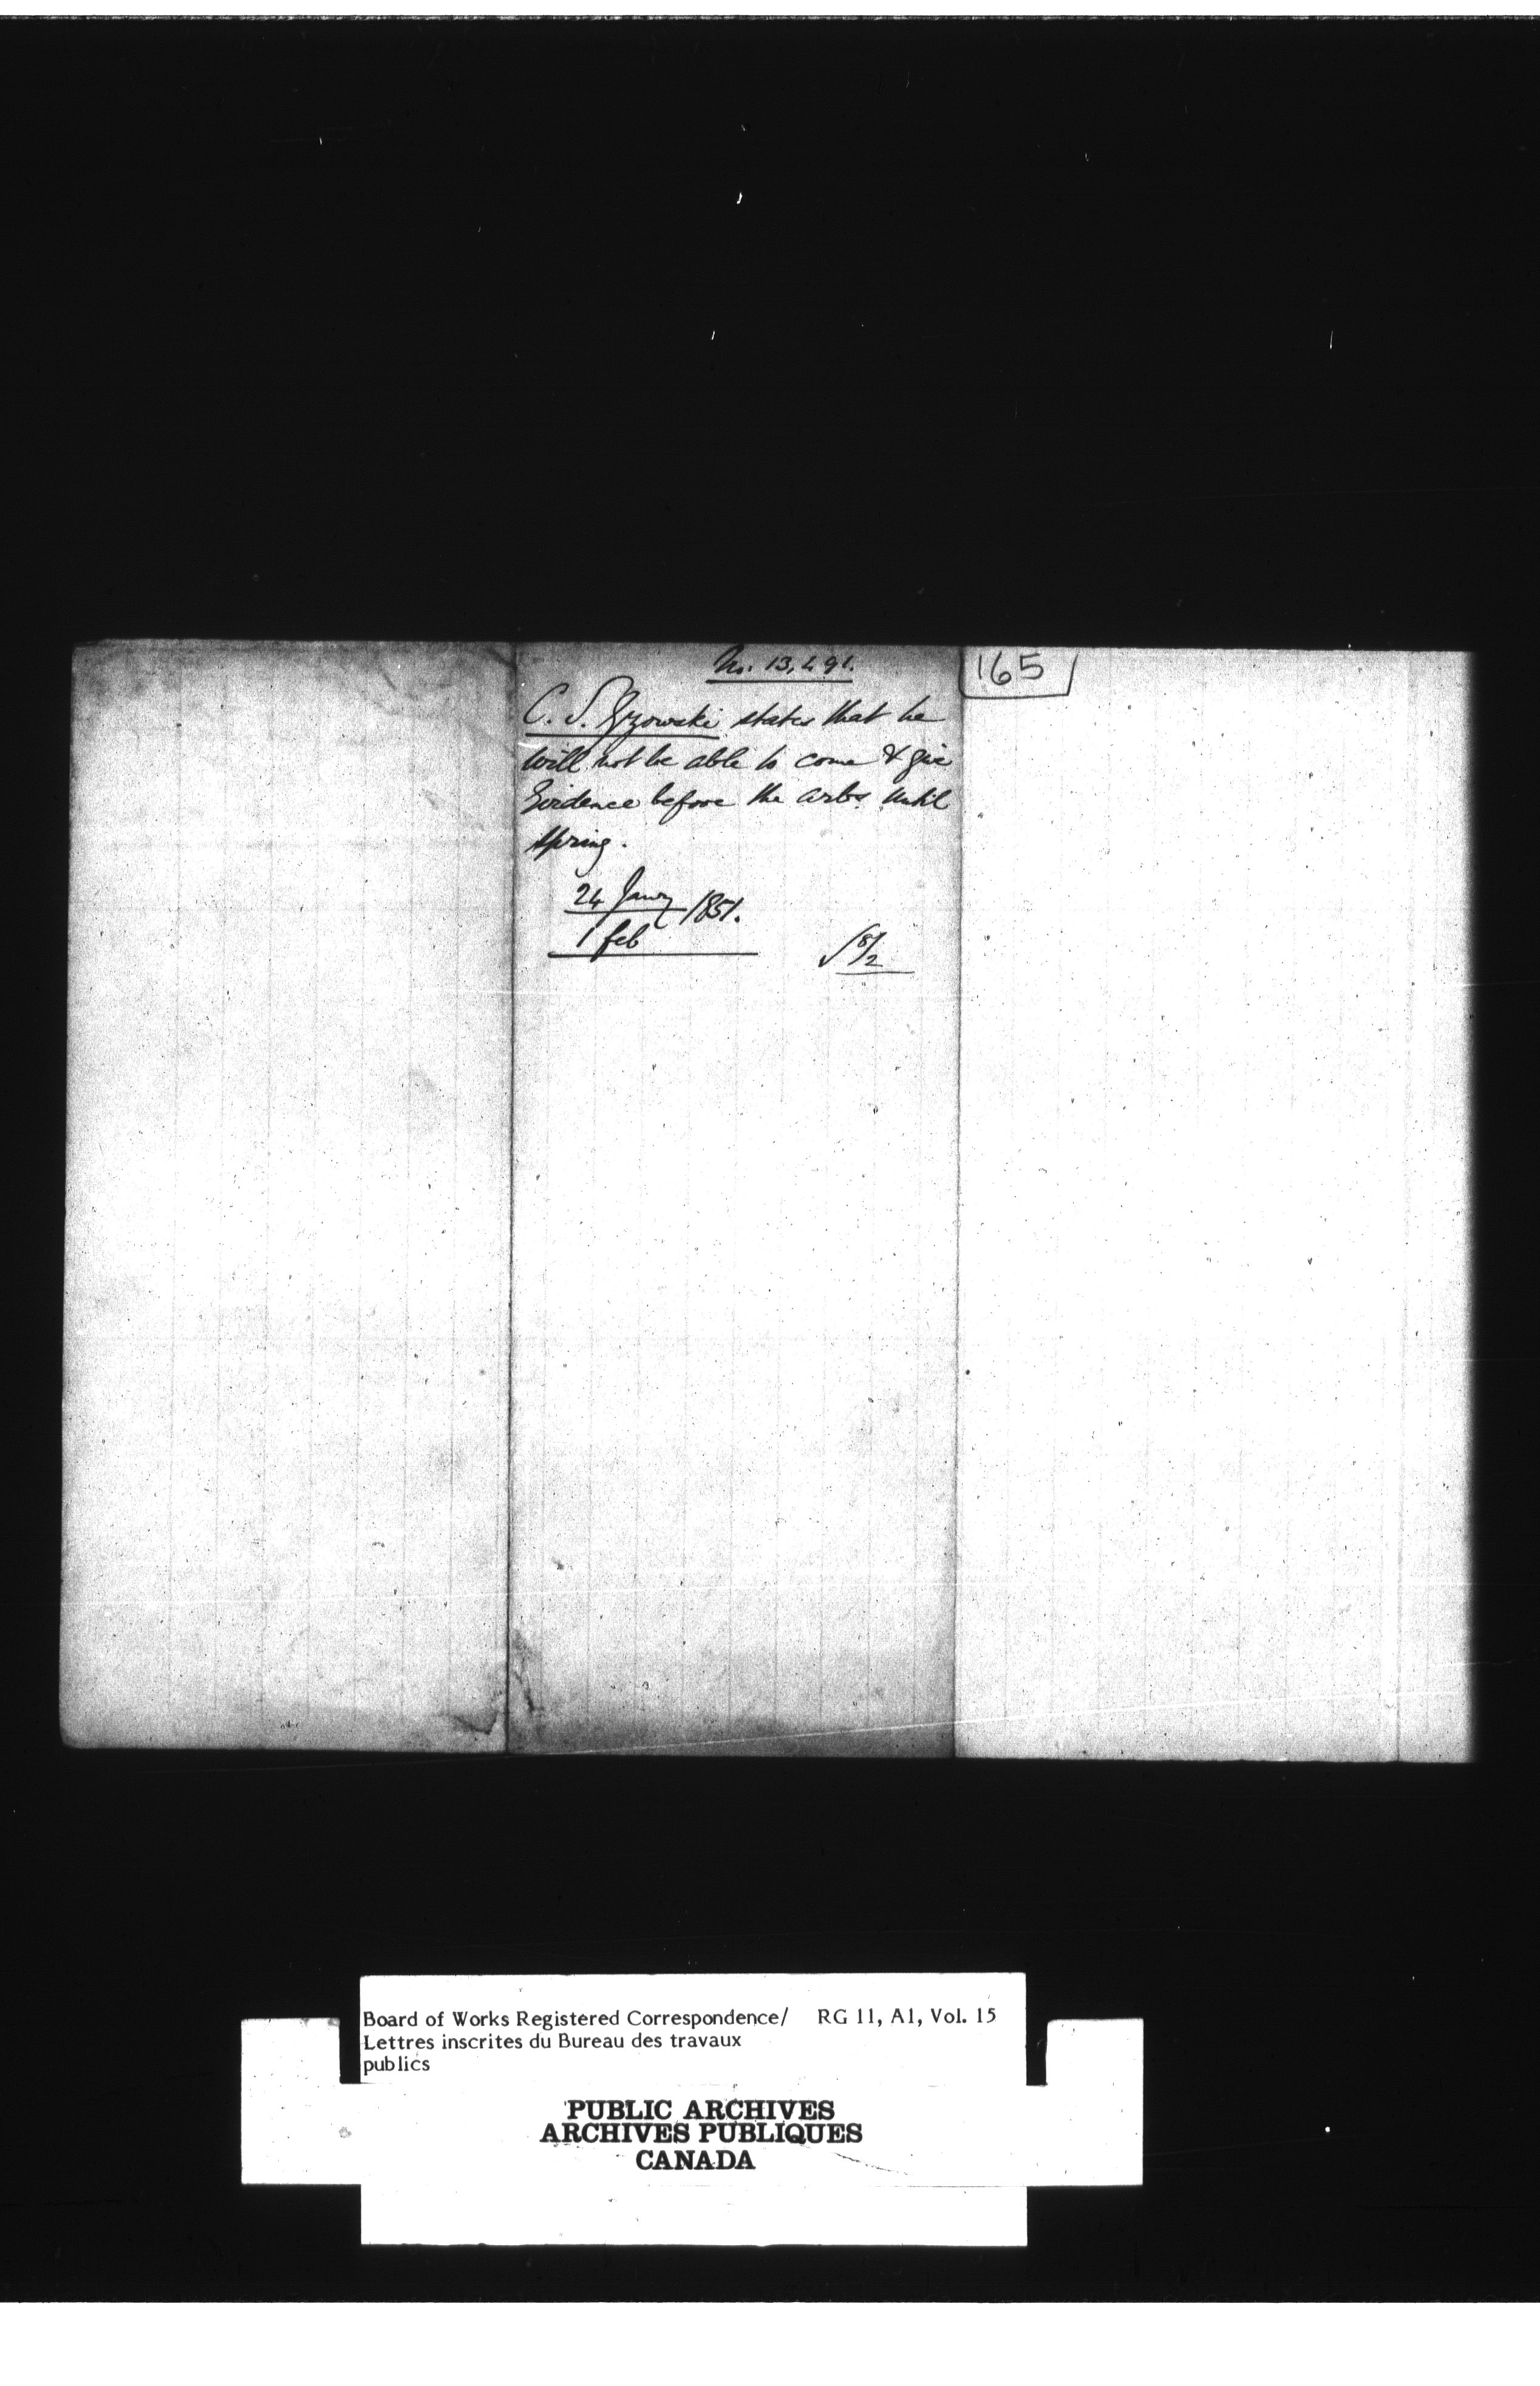 No. 13,491.
165
C. S. Gzowski states that he
will not be able to come & give
Evidence before the arbs. until
spring.
24 Jany 1851.
1 feb
√ 8/2
Board of Works Registered Correspondence/ RG 11, A1, Vol. 15
Lettres inscrites du Bureau des travaux
publics
PUBLIC ARCHIVES
ARCHIVES PUBLIQUES
CANADA